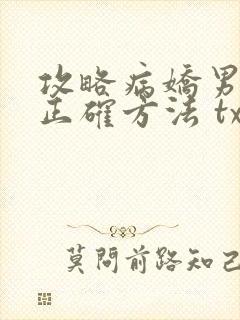 攻略病嬌男
正確方法 tx
莫問前路知己